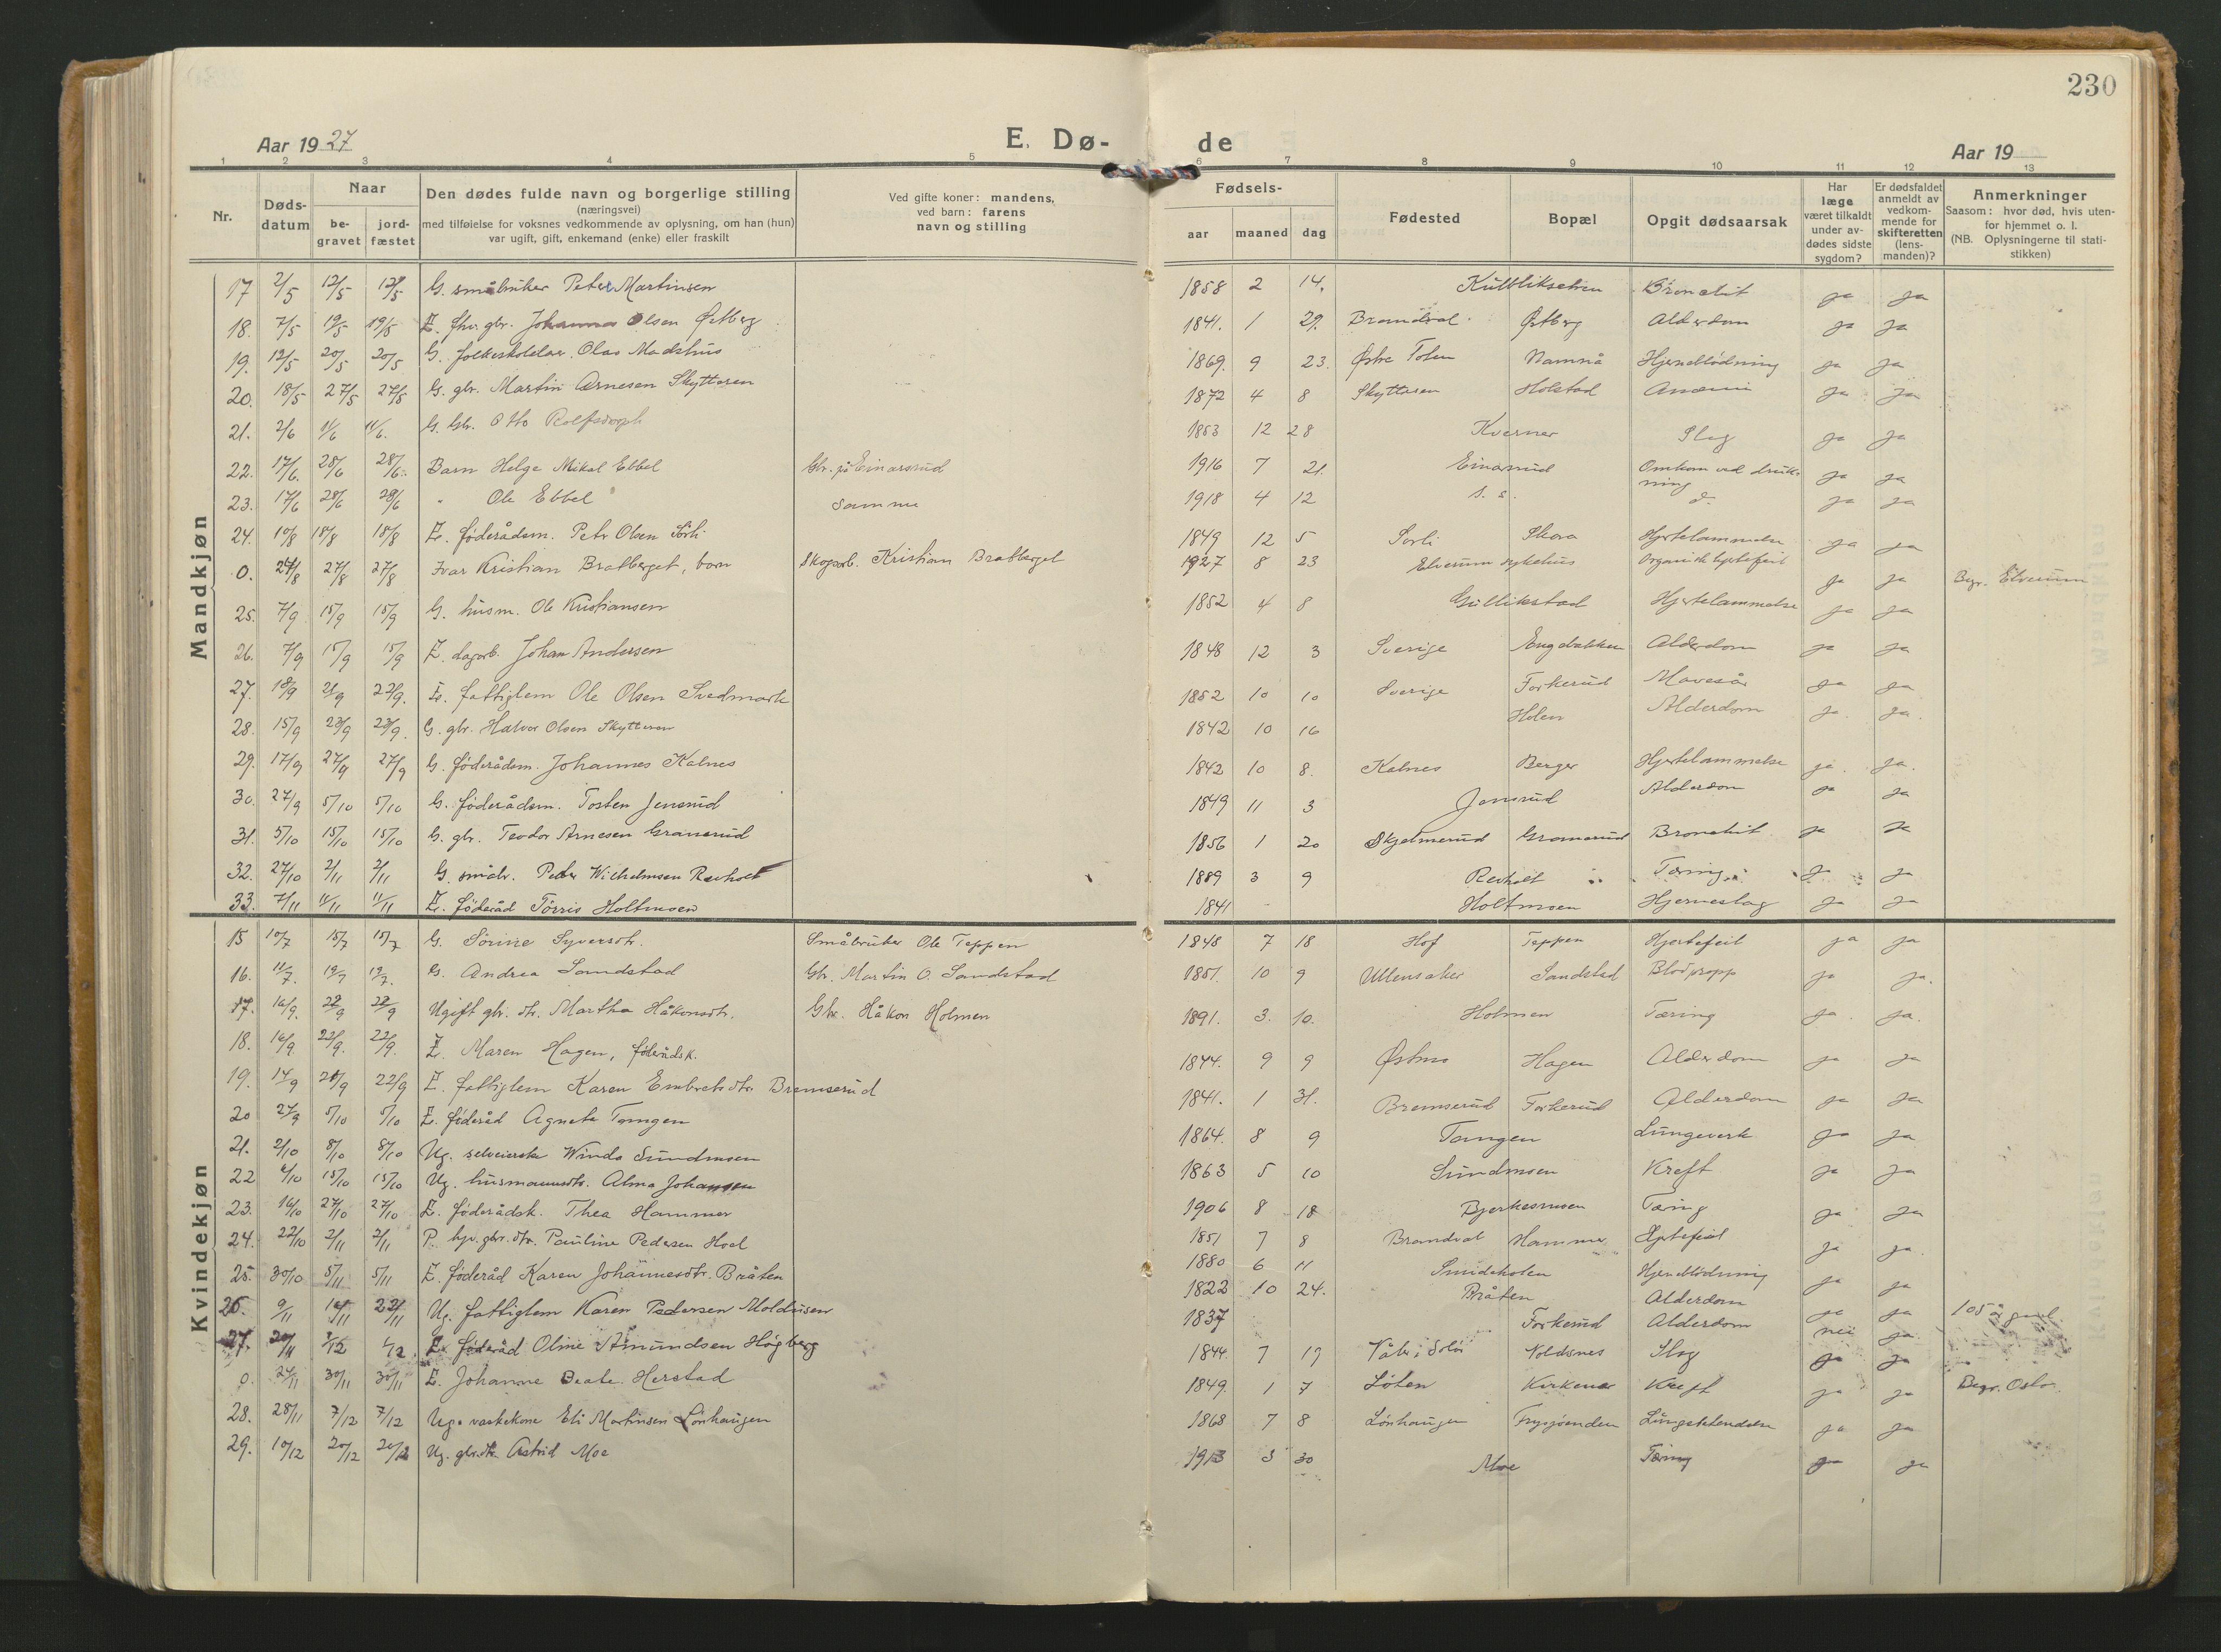 230
Aar 1927
E. Dø-
de
Aar 19
1 2 3 4 5 6 7 8 9 10 11 12 13
Nr.
Døds-
datum
Naar
be-
gravet
jord-
fæstet
Den dødes fulde navn og borgerlige stilling
(næringsvei)
med tilføielse for voksnes vedkommende av oplysning, om han (hun)
var ugift, gift, enkemand (enke) eller fraskilt
Ved gifte koner: mandens,
ved barn: farens
navn og stilling
Fødsels-
aar maaned dag
Fødested
Bopæl
Opgit dødsaarsak
Har
læge
været tilkaldt
under av-
dødes sidste
sygdom?
Er dødsfaldet
anmeldt av
vedkom-
mende for
skifteretten
(lens-
manden)?
Anmerkninger
Saasom: hvor død, hvis uten-
for hjemmet o. l.
(NB. Oplysningerne til stati-
stikken)
Mandkjøn
17 2/5 12/5 12/5 G. småbruker Peter Martinsen 1858 2 14. Bronchit ja ja
18. 7/5 19/5 19/5 E. fhv. gbr. Johannes Olsen Østberg 1841. 1 29. Brandval Østberg Alderdom ja ja
19. 12/5 20/5 20/5 G. folkeskolelær. Olas Madshus 1869. 9 23. Østre Toten Namnå Hjerneblödning ja ja
20. 18/5 27/5 27/5 G. gbr. Martin Arnesen Skytteren 1872 4 8 Skytteren Holstad Anæmi ja ja
21. 2/6 11/6 11/6. G. Gbr. Otto Rolfsdorph 1853 12 28 Kverner Slag ja ja
22. 17/6. 28/6 28/6. Barn Helge Mikal Ebbel Gbr. på Einarsrud 1916 7 21. Einarsrud Omkom ved drukning ja ja
23. 17/6 28/6 28/6 " Ole Ebbel Samme 1918 4 12 s. s. d. ja ja
24. 10/8 18/8 18/8 E. føderådsm. Petr Olsen Sörli 1849 12 5 Sorli Skara Hjertelammelse ja ja
0. 24/8 27/8 27/8 Ivar Kristian Bratberget, barn Skogarb. Kristian Bratberget 1927 8 23 Elverum sykehus Organisk hjertefeil ja ja Begr. Elverum
25. 7/9 15/9 15/9 G. husm. Ole Kristiansen 1852 4 8 Gullikstad Hjertelammelse ja ja
26. 7/9 15/9 15/9 E. dagarb. Johan Andersen 1848 12 3 Sverige Engebakken Alderdom ja ja
27. 18/9 21/9 22/9. fattiglem Ole Olsen Svedmark 1852 10 10 Sverige Forkerud Mavesår ja ja
28. 15/9 23/9 23/9. G. gbr. Halvor Olsen Skytteren 1842 10 16 Holen Alderdom ja. ja.
29. 17/9 27/9 27/9 G. føderådsm. Johannes Kalnes 1842 10 8. Kalnes Berger Hjertelammelse ja. ja.
30. 27/9 5/10 5/10 G. føderådsm. Tosten Jensrud 1849 11 3 Jensrud Alderdom ja ja
31. 5/10 15/10 15/10 G. gbr. Teodor Arnesen Granerud 1856 1 20 Skjelmerud Granerud Bronchit ja ja
32. 27/10 2/11 2/11 G. småbr. Peder Wilhelmsen Revholt 1889 3 9 Revholt Tæring ja ja
33. 7/11 11/11 11/11 E. föderåd Törris Holtmoen 1841 Holtmoen Hjerneslag ja ja
Kvindekjøn
15 10/7 15/7 15/7 G. Sørine Syversdtr. Småbruker Ole Teppen 1848 7 18 Hof Teppen Hjertefeil ja ja
16. 11/7. 19/7 19/7. G. Andrea Sandstad Gbr. Martin O. Sandstad 1851. 10 9 Ullensaker Sandstad Blodpropp ja ja.
17. 16/9. 22/9 22/9 Ugift gbr. dtr. Martha Håkonsdtr. Gbr. Håkon Holmen 1891. 3. 10. Holmen Tæring ja ja.
18. 16/9 22/9. 22/9. E. Maren Hagen, føderådsk. 1844. 9 9 Østmo Hagen Alderdom ja ja
19. 14/9 21/9 22/9 E. fattiglem Karen Embretsdtr. Bremserud 1841. 1 31. Bremserud Forkerud Alderdom ja ja
20 27/9 5/10 5/10 E. føderåd Agnete Tangen 1864. 8 9 Tangen Lungeverk ja ja
21. 2/10 8/10 8/10 Ug. selveierske Winda Sundmoen 1863 5 10 Sundmoen Kreft ja ja
22 6/10 15/10 15/10 Ug. husmannsdtr. Alma Johansen 1906 8 18 Bjerkesmoen Tæring ja ja
23. 16/10 27/10 27/10 E. føderådsk. Thea Hammer 1851 7 8 Brandval Hammer Hjertefeil ja ja
24. 22/10 2/11 2/11 hjv. gbr. dtr. Pauline Pedersen Hoel 1880 6 11 Smideholen Hjerneblödning ja ja
25. 30/10 5/11 5/11 E. føderåd Karen Johannesdtr. Bråten 1822 10 24. Bråten Alderdom ja ja 105 å gml.
26. 9/11 22/11 Ug. fattiglem Karen Pedersen Moldusen 1837 Forkerud Alderdom nei ja
27. 20/11 1/12 1/12. E. føderåd Oline Amundsen Högberg 1844. 7 17 Våler i Solör Noldsnes Slag ja ja
0. 24/11 30/11 30/11 E. Johanne Beate Herstad 1849. 1 7 Löten Kirkener Kreft ja ja Begr. Oslo
28. 28/11 7/12 7/12 Ug. vaskekone Eli Martinsen Lönhaugen 1868 7 8 Lönhaugen Frysjøenden Lungebetendelse ja ja
29. 10/12 20/12 20/12 Ug. gbr.dtr. Astrid Moe 1913 3 30 Moe Tæring ja ja